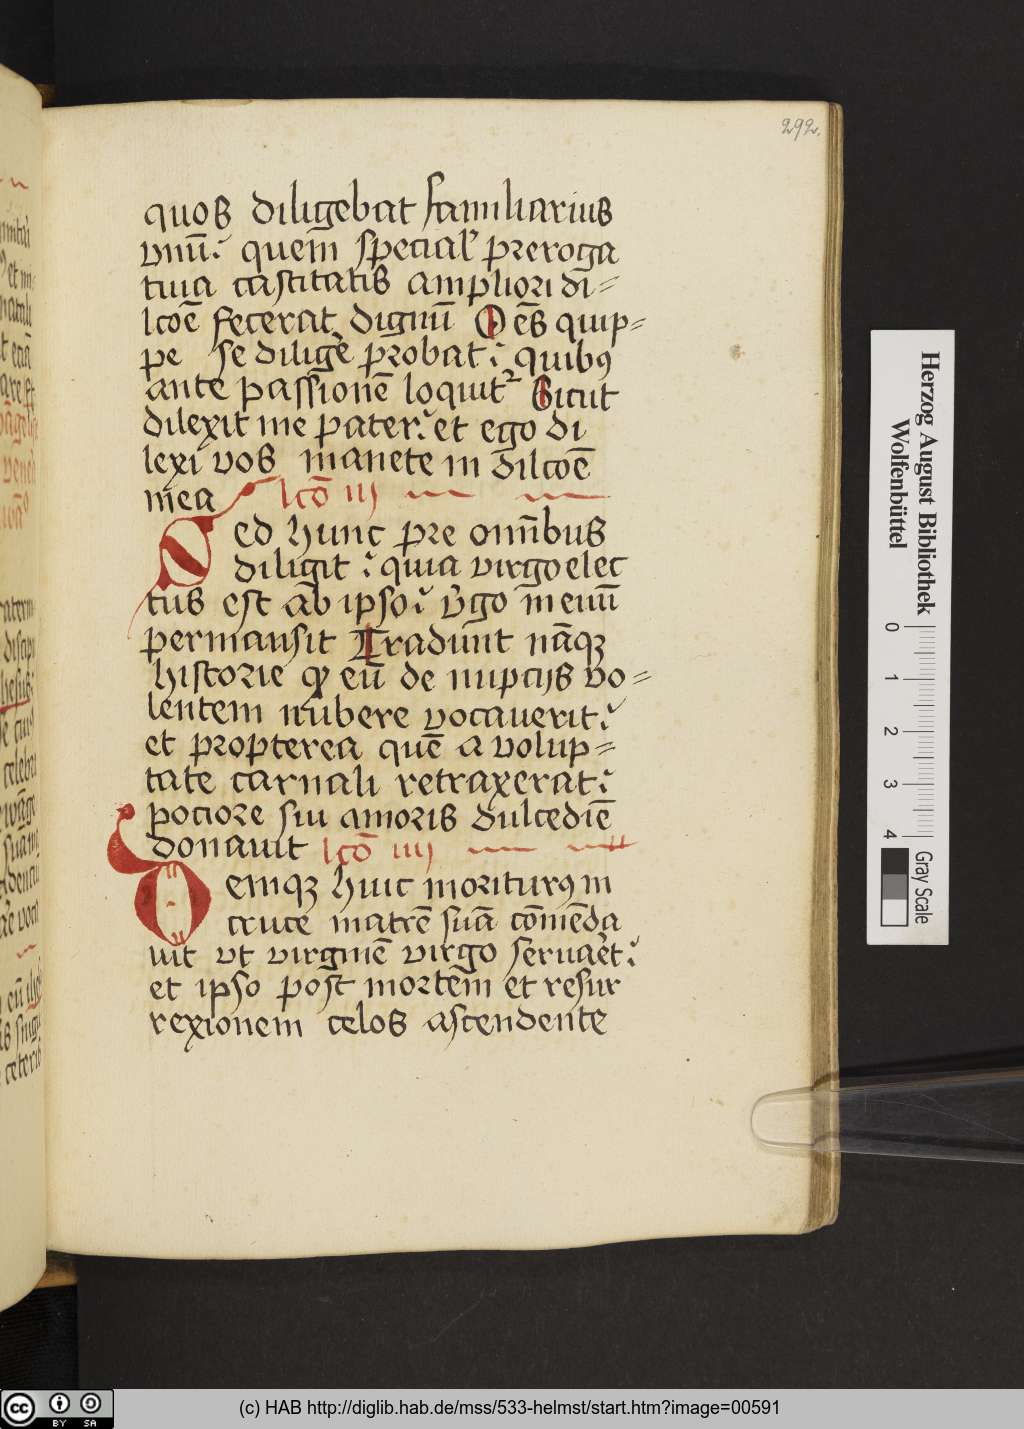 292.
quos diligebat familiarius
vnū: quem special' preroga
tiua castitatis ampliori di=
lcōe fecerat dignū Oēs quip=
pe se diligē probat: quibꝯ
ante passionē loquit᷑ Sicut
dilexit me pater: et ego di
lexi vos manete in dilcōe
mea lcō iij
Sed hunc pre om̄ibus
diligit: quia virgo elec
tus est ab ipso: v̄go in euū
permansit Tradunt nāqꝫ
historie ꝙ eū de nupcijs vo=
lentem nubere vocauerit:
et propterea quē a volup=
tate carnali retraxerat:
pociore sui amoris dulcedīe
donauit lcō iiij
Deniqꝫ huic moriturꝯ in
cruce matrē suā cōmēda
uit vt virginē virgo seruaret:
et ipso post mortem et resur
rexionem celos ascendente
Herzog August Bibliothek
Wolfenbüttel
0 1 2 3 4
Gray Scale
cc BY SA
(c) HAB http://diglib.hab.de/mss/533-helmst/start.htm?image=00591